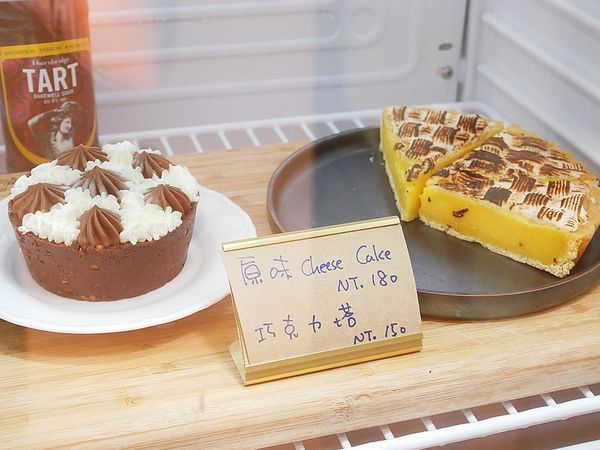 Thornbridge
TART
BAKEWELL SOUR
原味 Cheese Cake
NT. 180
巧克力塔
NT. 150